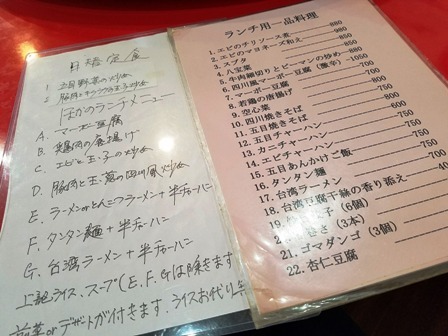 日替定食
1. 五目野菜の炒め
2. 豚肉とキクラゲの玉子炒め
ほかのランチメニュー
A. マーボー豆腐
B. 鶏肉の唐揚げ
C. エビと玉子の炒め
D. 豚肉と玉葱の四川風炒め
E. ラーメンorとんこつラーメン+半チャーハン
F. タンタン麺+半チャーハン
G. 台湾ラーメン+半チャーハン
上記ライス、スープ(E.F.Gは除きます
デザートが付きます.ライスお代り
ランチ用一品料理
1. エビのチリソース煮 880
2. エビのマヨネーズ和え 980
3. スブタ
4. 八宝菜
5. 牛肉細切りとピーマンの炒め
6. 四川風マーボー豆腐(激辛) 1050
7. マーボー豆腐
8. 若鶏の唐揚げ
9. 空心菜
10. 四川焼きそば
11. 五目焼きそば
12. 五目チャーハン
13. カニチャーハン
14. エビチャーハン
15. 五目あんかけご飯
16. タンタン麺
17. 台湾ラーメン
18. 台湾豆腐干絲の香り添え
19. 子(6個)
20. (3本)
21. ゴマダンゴ(3個)
22. 杏仁豆腐